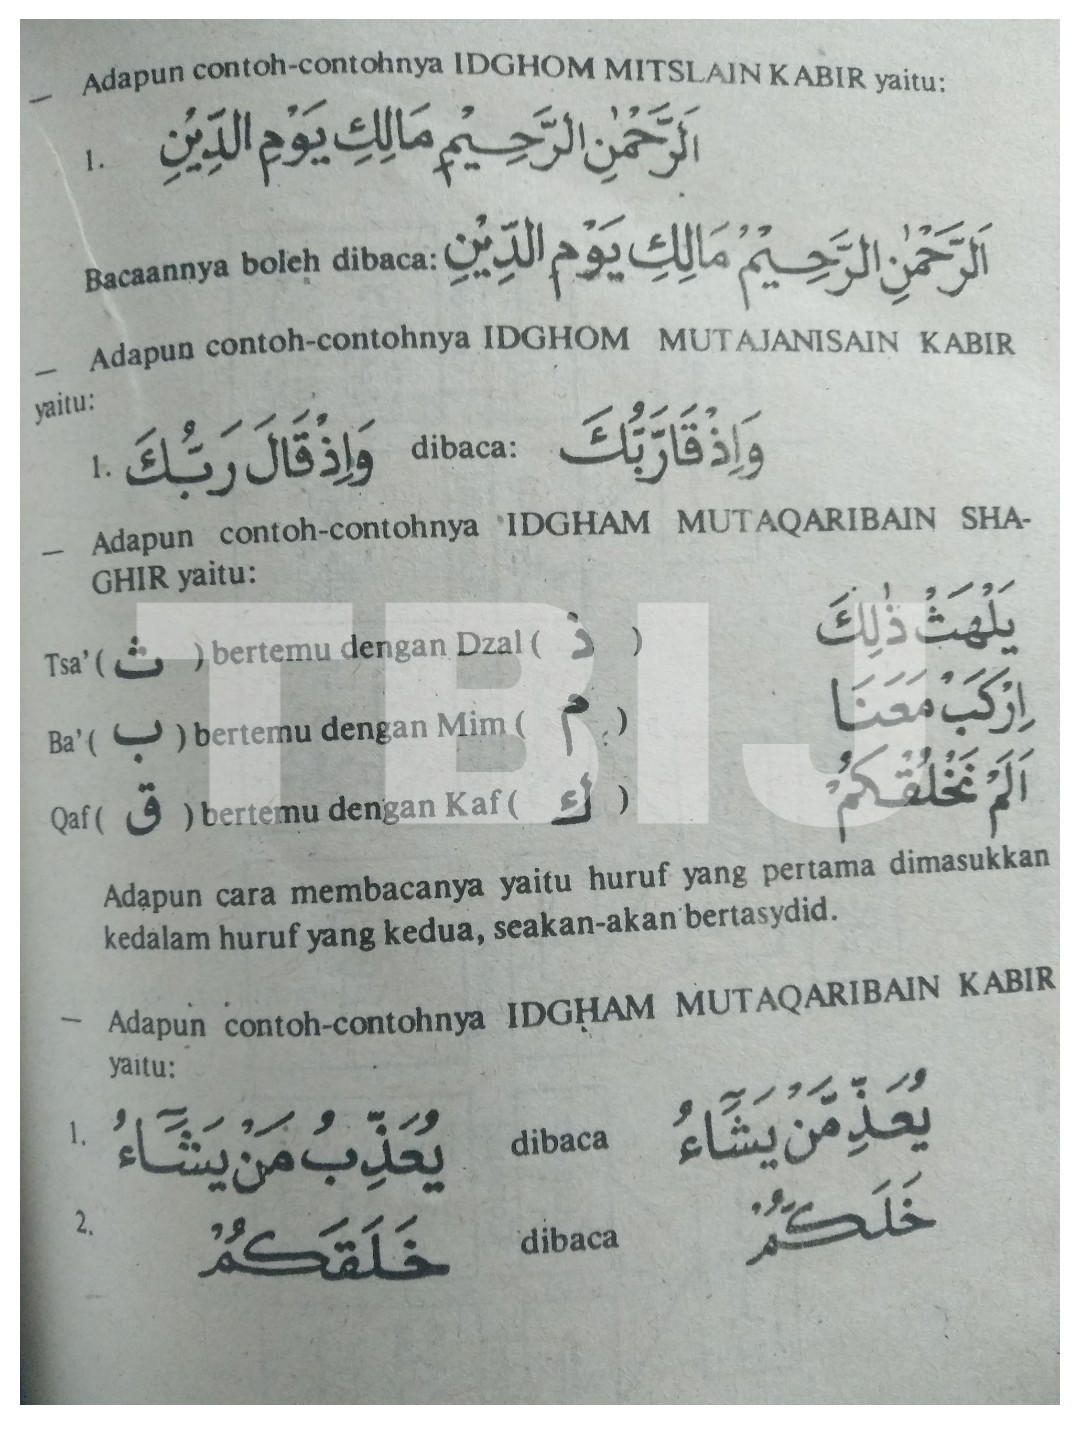 — Adapun contoh-contohnya IDGHOM MITSLAIN KABIR yaitu:
1. اَلرَّحْمٰنِ الرَّحِيْمِ مَالِكِ يَوْمِ الدِّيْنِ
Bacaannya boleh dibaca: اَلرَّحْمٰنِ الرَّحِيْمْ مَالِكِ يَوْمِ الدِّيْنِ
— Adapun contoh-contohnya IDGHOM MUTAJANISAIN KABIR
yaitu:
1. وَاِذْ قَالَ رَبُّكَ dibaca: وَاِذْ قَارَّبُّكَ
— Adapun contoh-contohnya IDGHAM MUTAQARIBAIN SHA-
GHIR yaitu:
Tsa' ( ث ) bertemu dengan Dzal ( ذ ) يَلْهَثْ ذٰلِكَ
Ba' ( ب ) bertemu dengan Mim ( م ) اِرْكَبْ مَعَنَا
Qaf ( ق ) bertemu dengan Kaf ( ك ) اَلَمْ نَخْلُقْكُمْ
Adapun cara membacanya yaitu huruf yang pertama dimasukkan
kedalam huruf yang kedua, seakan-akan bertasydid.
— Adapun contoh-contohnya IDGHAM MUTAQARIBAIN KABIR
yaitu:
1. يُعَذِّبُ مَنْ يَشَآءُ dibaca يُعَذِّمَّنْ يَشَآءُ
2. خَلَقَكُمْ dibaca خَلَكُّمْ
TBIJ